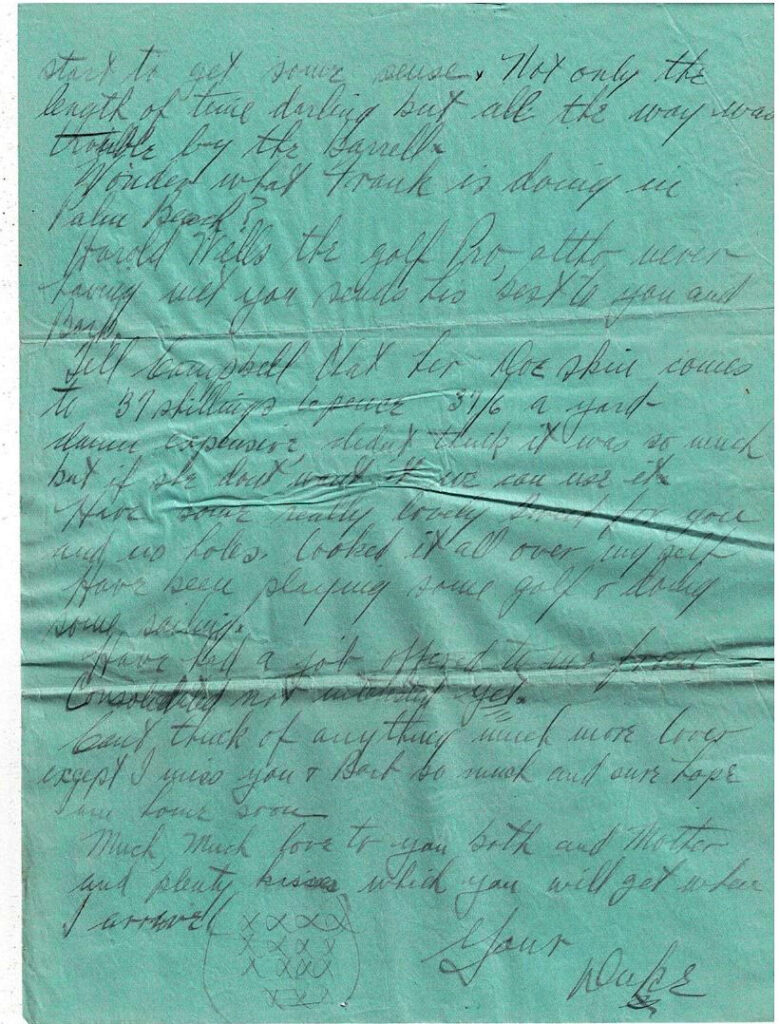 start to get some sense. Not only the
length of time darling but all the way was
trouble by the barrell.
Wonder what Frank is doing in
Palm Beach?
Harold Wells the golf Pro, altho never
having met you sends his best to you and
Barb.
Tell Campbell that her Doe skin comes
to 37 shillings 6 pence 37/6 a yard
damn expensive, didnt think it was so much
but if she dont want it we can use it.
Have some really lovely for you
and no holes. Looked it all over my self
Have been playing some golf & doing
some sailing.
Have had a job offered to me from
Consolidated not yet.
Cant think of anything much more lover
except I miss you & Barb so much and sure hope
I am home soon
Much, Much love to you both and Mother
and plenty kisses which you will get when
I arrive
X X X X
X X X X
X X X X
X X X
Your
Duke